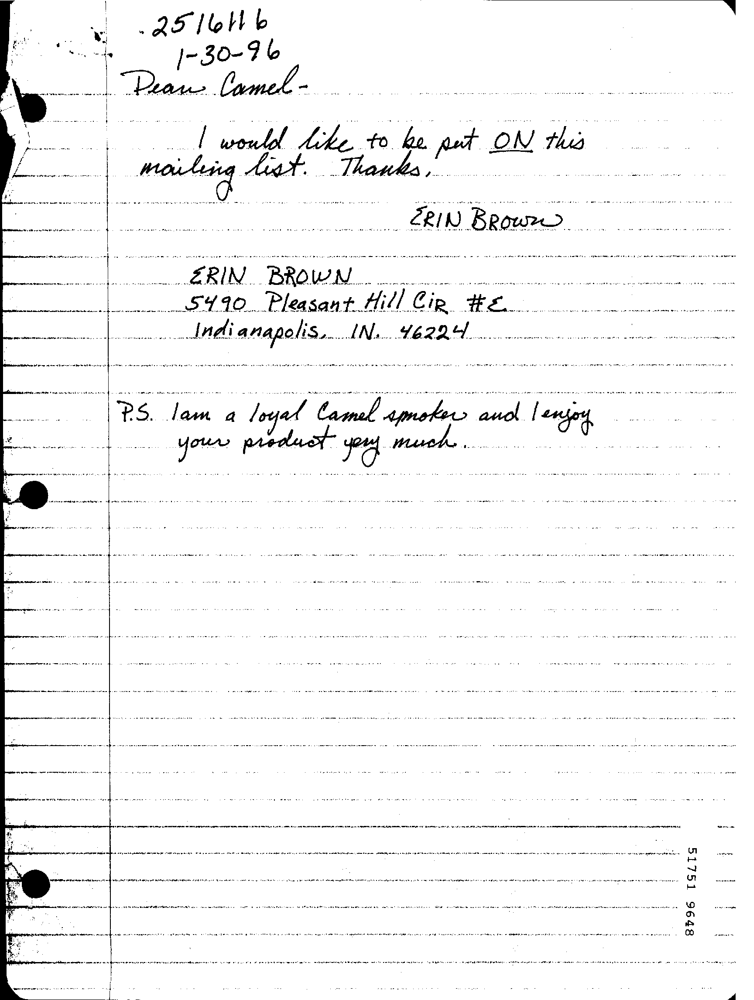 2516116
1-30-96
Dear Camel-
I would like to be put ON this
mailing list. Thanks,
ERIN BROWN
ERIN BROWN
5490 Pleasant Hill CIR #E
Indianapolis, IN. 46224
P.S. I am a loyal Camel smoker and I enjoy
your product very much.
51751 9648